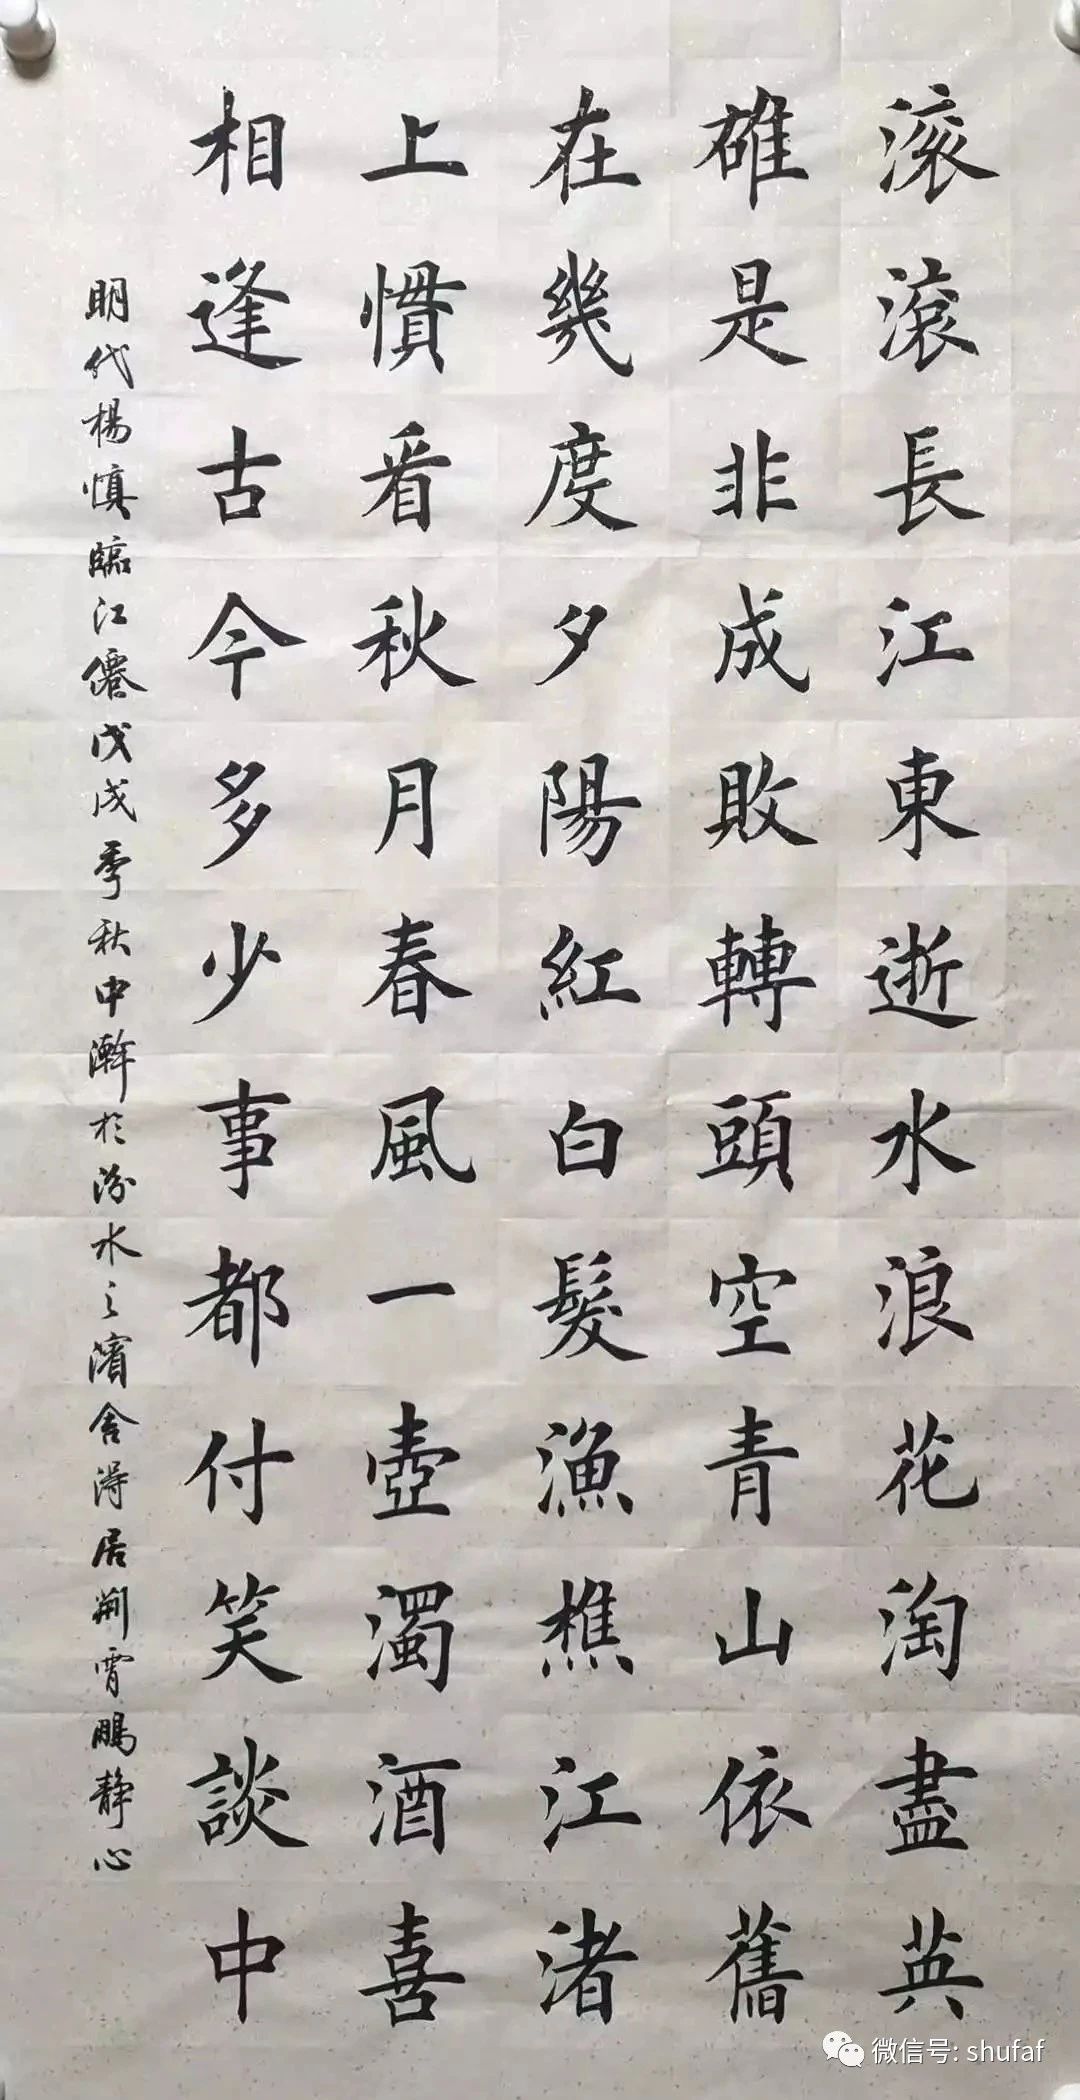 滚滚長江東逝水浪花淘盡英
雄是非成敗轉頭空青山依舊
在幾度夕陽紅白髮漁樵江渚
上慣看秋月春風一壺濁酒喜
相逢古今多少事都付笑談中
明代楊慎臨江僊戊戌季秋中澣於汾水之濱舍得居荊霄鵬静心
微信号: shufaf